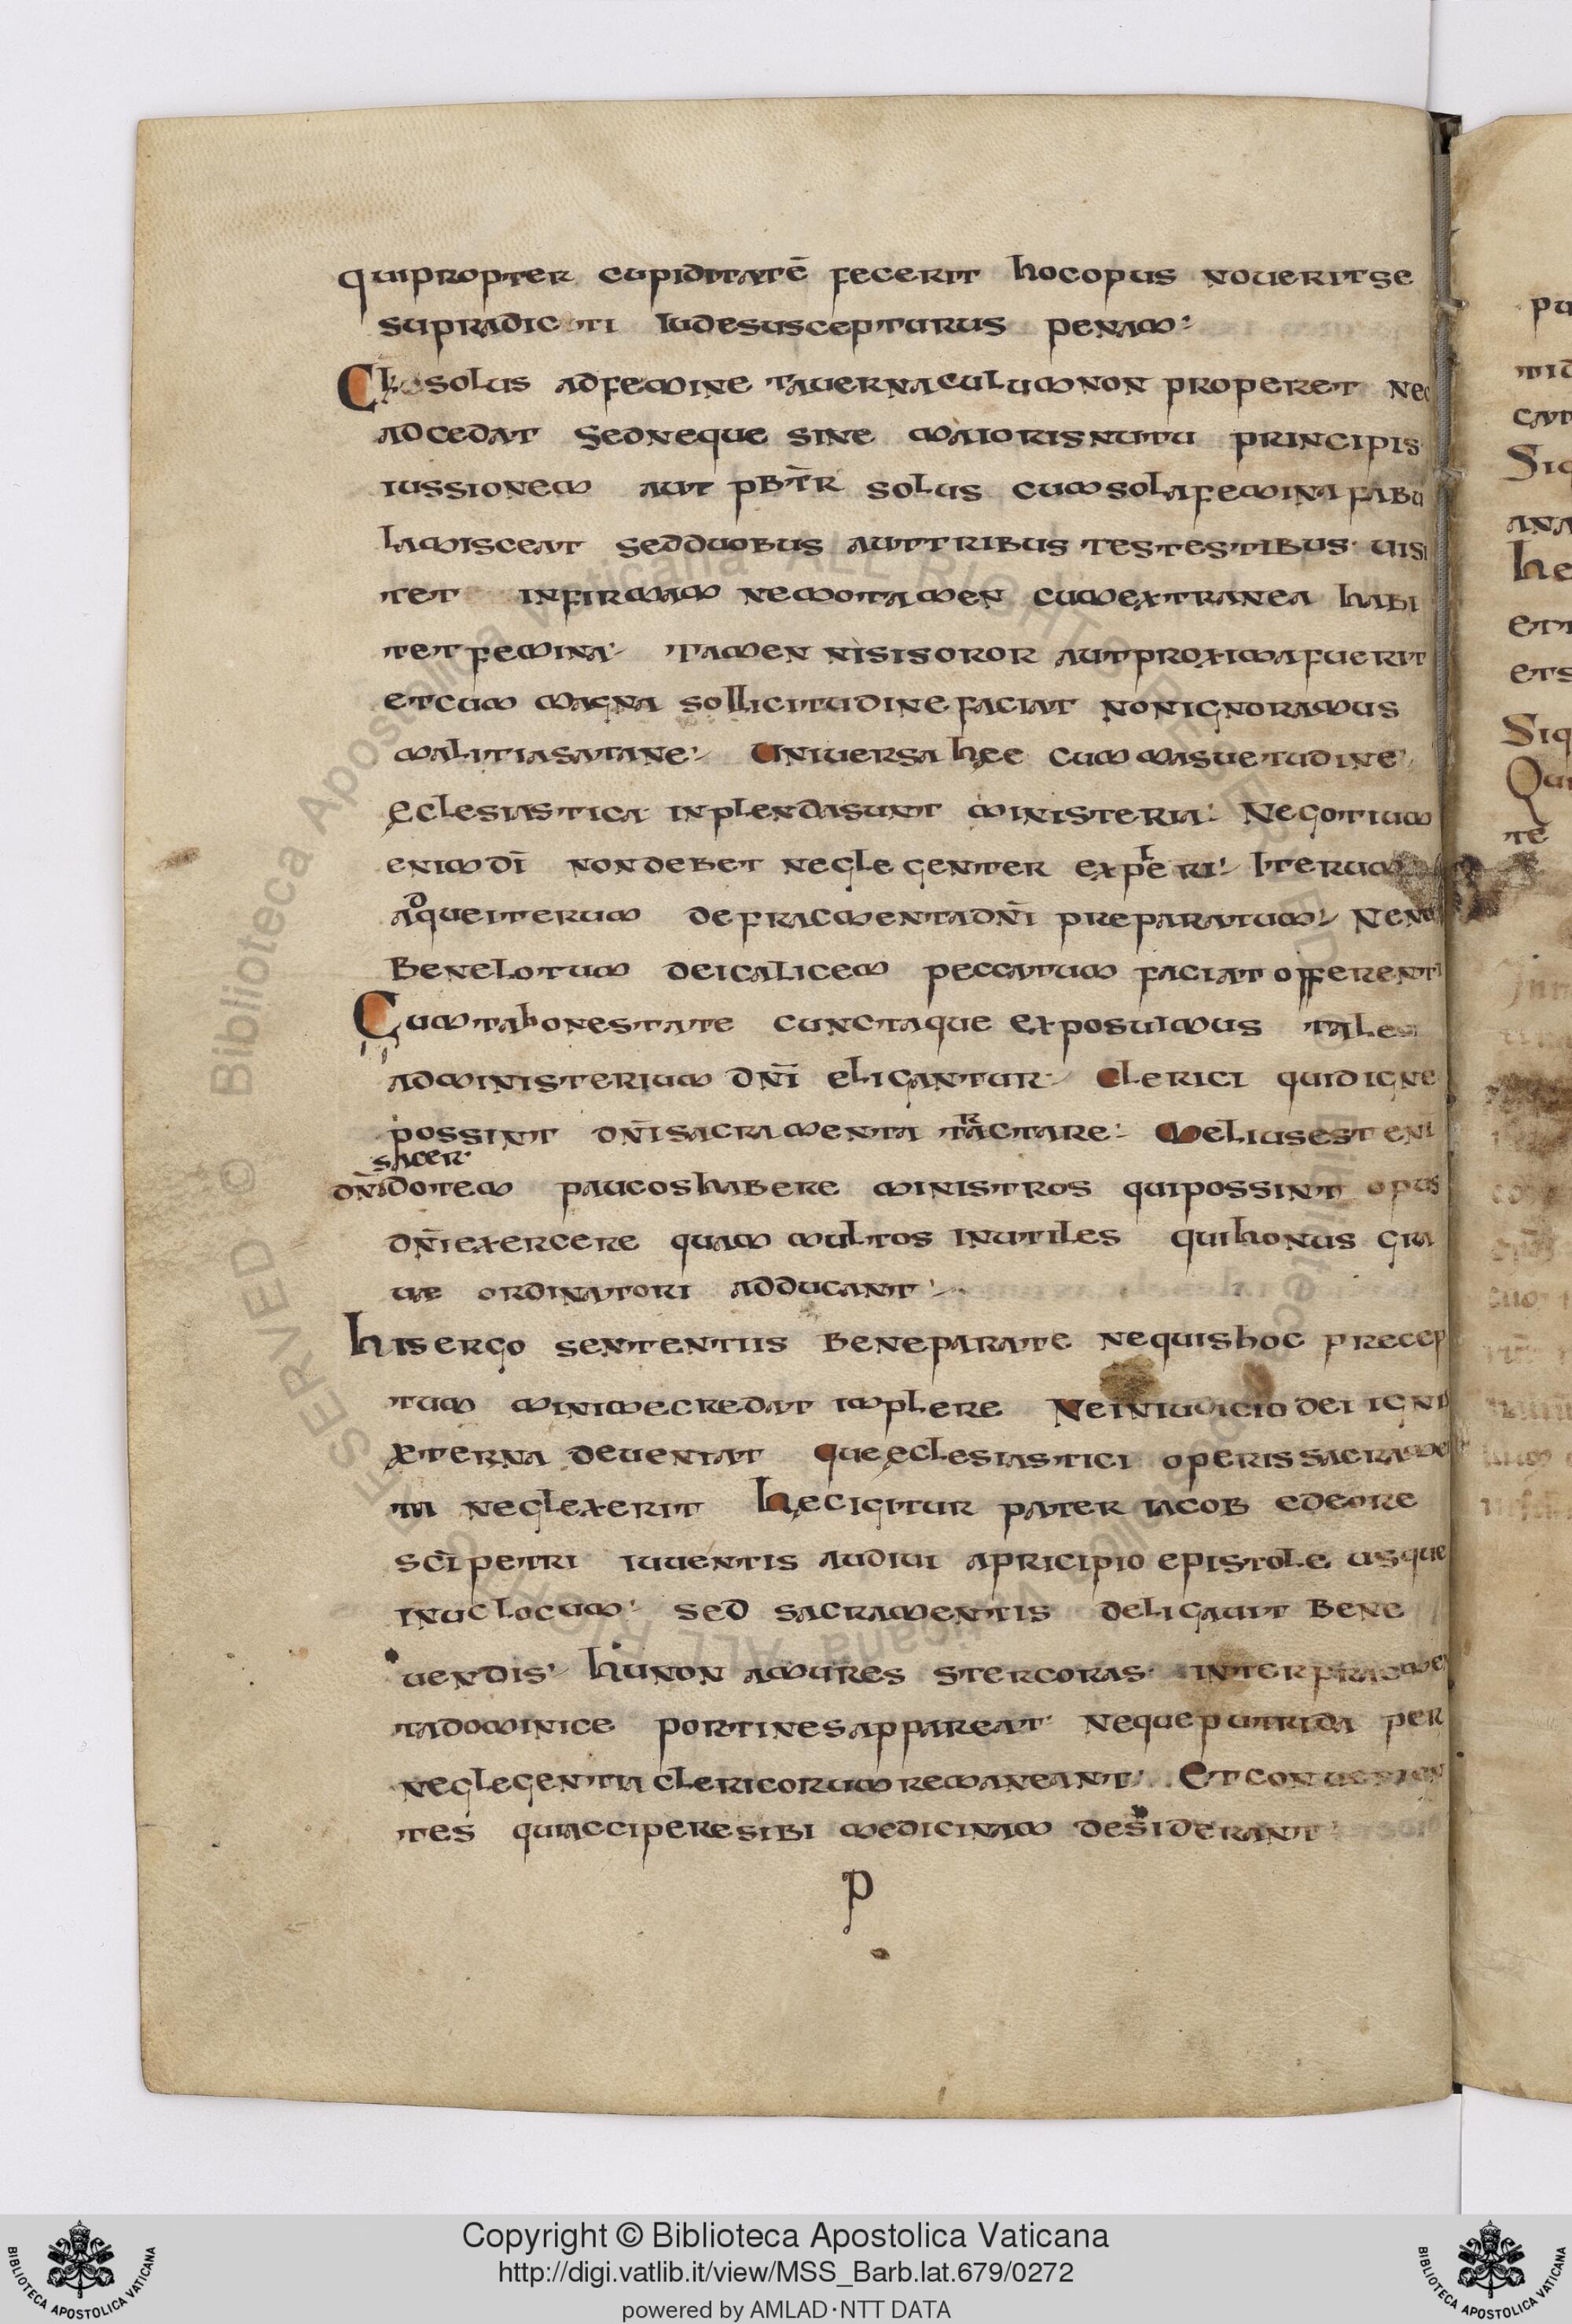 quipropter cupiditatē fecerit hocopus noueritse
supradicti Iudesuscepturus penam:
solus adfemine tauernaculumnon properet nec
adcedat sedneque sine maiorisnutu principis
iussionem aut pbt̄r solus cumsolafemina fabu
lamisceat sedduobus auttribus testestibus· uisi
tet infirmam nemotamen cumextranea habi
tetfemina· tamen nisisoror autproximafuerit
etcum magna sollicitudinefaciat nonignoramus
malitiasatane· Uniuersa hęc cum masuetudine
ęclesiastica inplendasunt ministeria: Negotium
enimdī nondebet neglegenter experi· Iterum
aqueiterum defracmentadn̄i preparatum· Nen
Benelotum deicalicem peccatum faciatofferenti
Cumtahonestate cunctaque exposuimus tales
administerium dn̄i eligantur· clerici quidigne
possint dn̄isacramenta tractare: meliusest eni
sacer·
dn̄idotem paucoshabere ministros quipossint opus
dn̄iexercere quam multos inutiles quihonus gra
uæ ordinatori adducant·
his ergo sententiis Beneparate nequishoc precep
tum minimecredat implere Neiniudicio dei igni
æterna deueniat queęclesiastici operissacrame
ta neglexerit hęcigitur pater iacob edeore
scīpetri iuuentis audiui apricipio epistole usque
inuclocum· sed sacramentis deligauit Bene
uendis· hunon amures stercoras· interfracme
tadominice portinesappareat· nequeputrida per
neglegentia clericorumremaneant· Etconuenien
tes quiacciperesibi medicinam desiderant
p
pu
tid
cat
Siq
ana
he
ets
Siq
Qui
te
Copyright © Biblioteca Apostolica Vaticana
http://digi.vatlib.it/view/MSS_Barb.lat.679/0272
powered by AMLAD·NTT DATA
BIBLIOTECA APOSTOLICA VATICANA
BIBLIOTECA APOSTOLICA VATICANA